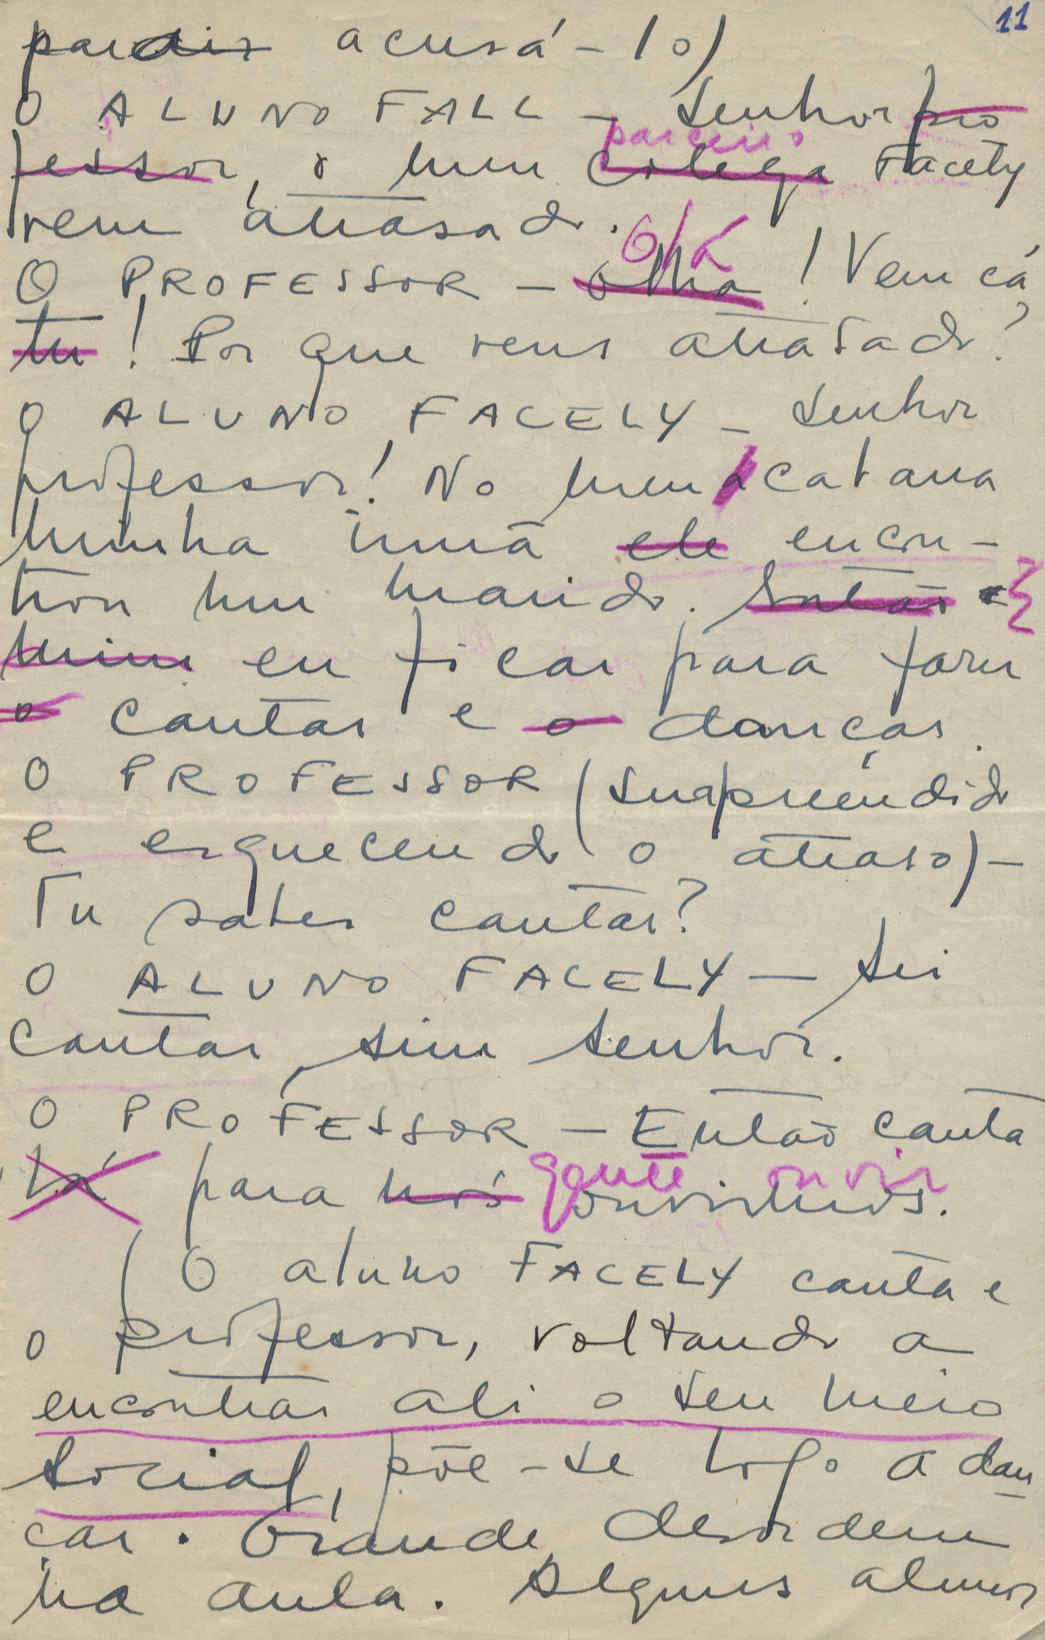 11
para ir acusá-lo)
O ALUNO FALL - Senhor pro
parceiro
fessor, o meu colega Facely
vem atrasado.
Olá
O PROFESSOR - Olha! Vem cá
tu! Por que vens atrasado?
O ALUNO FACELY - Senhor
professor! No meu cabana
minha irmã ele encon-
trou um marido. Então e
mim eu ficar para fazer
o cantar e o dançar.
O PROFESSOR (surpreendido
e esquecendo o atraso) -
Tu sabes cantar?
O ALUNO FACELY - Sei
cantar, sim senhor.
O PROFESSOR - Então canta
gente ouvir
lá para nós ouvirmos.
(O aluno FACELY canta e
o professor, voltando a
encontrar ali o seu meio
social, põe-se logo a dan
çar. Grande desordem
na aula. Alguns alunos